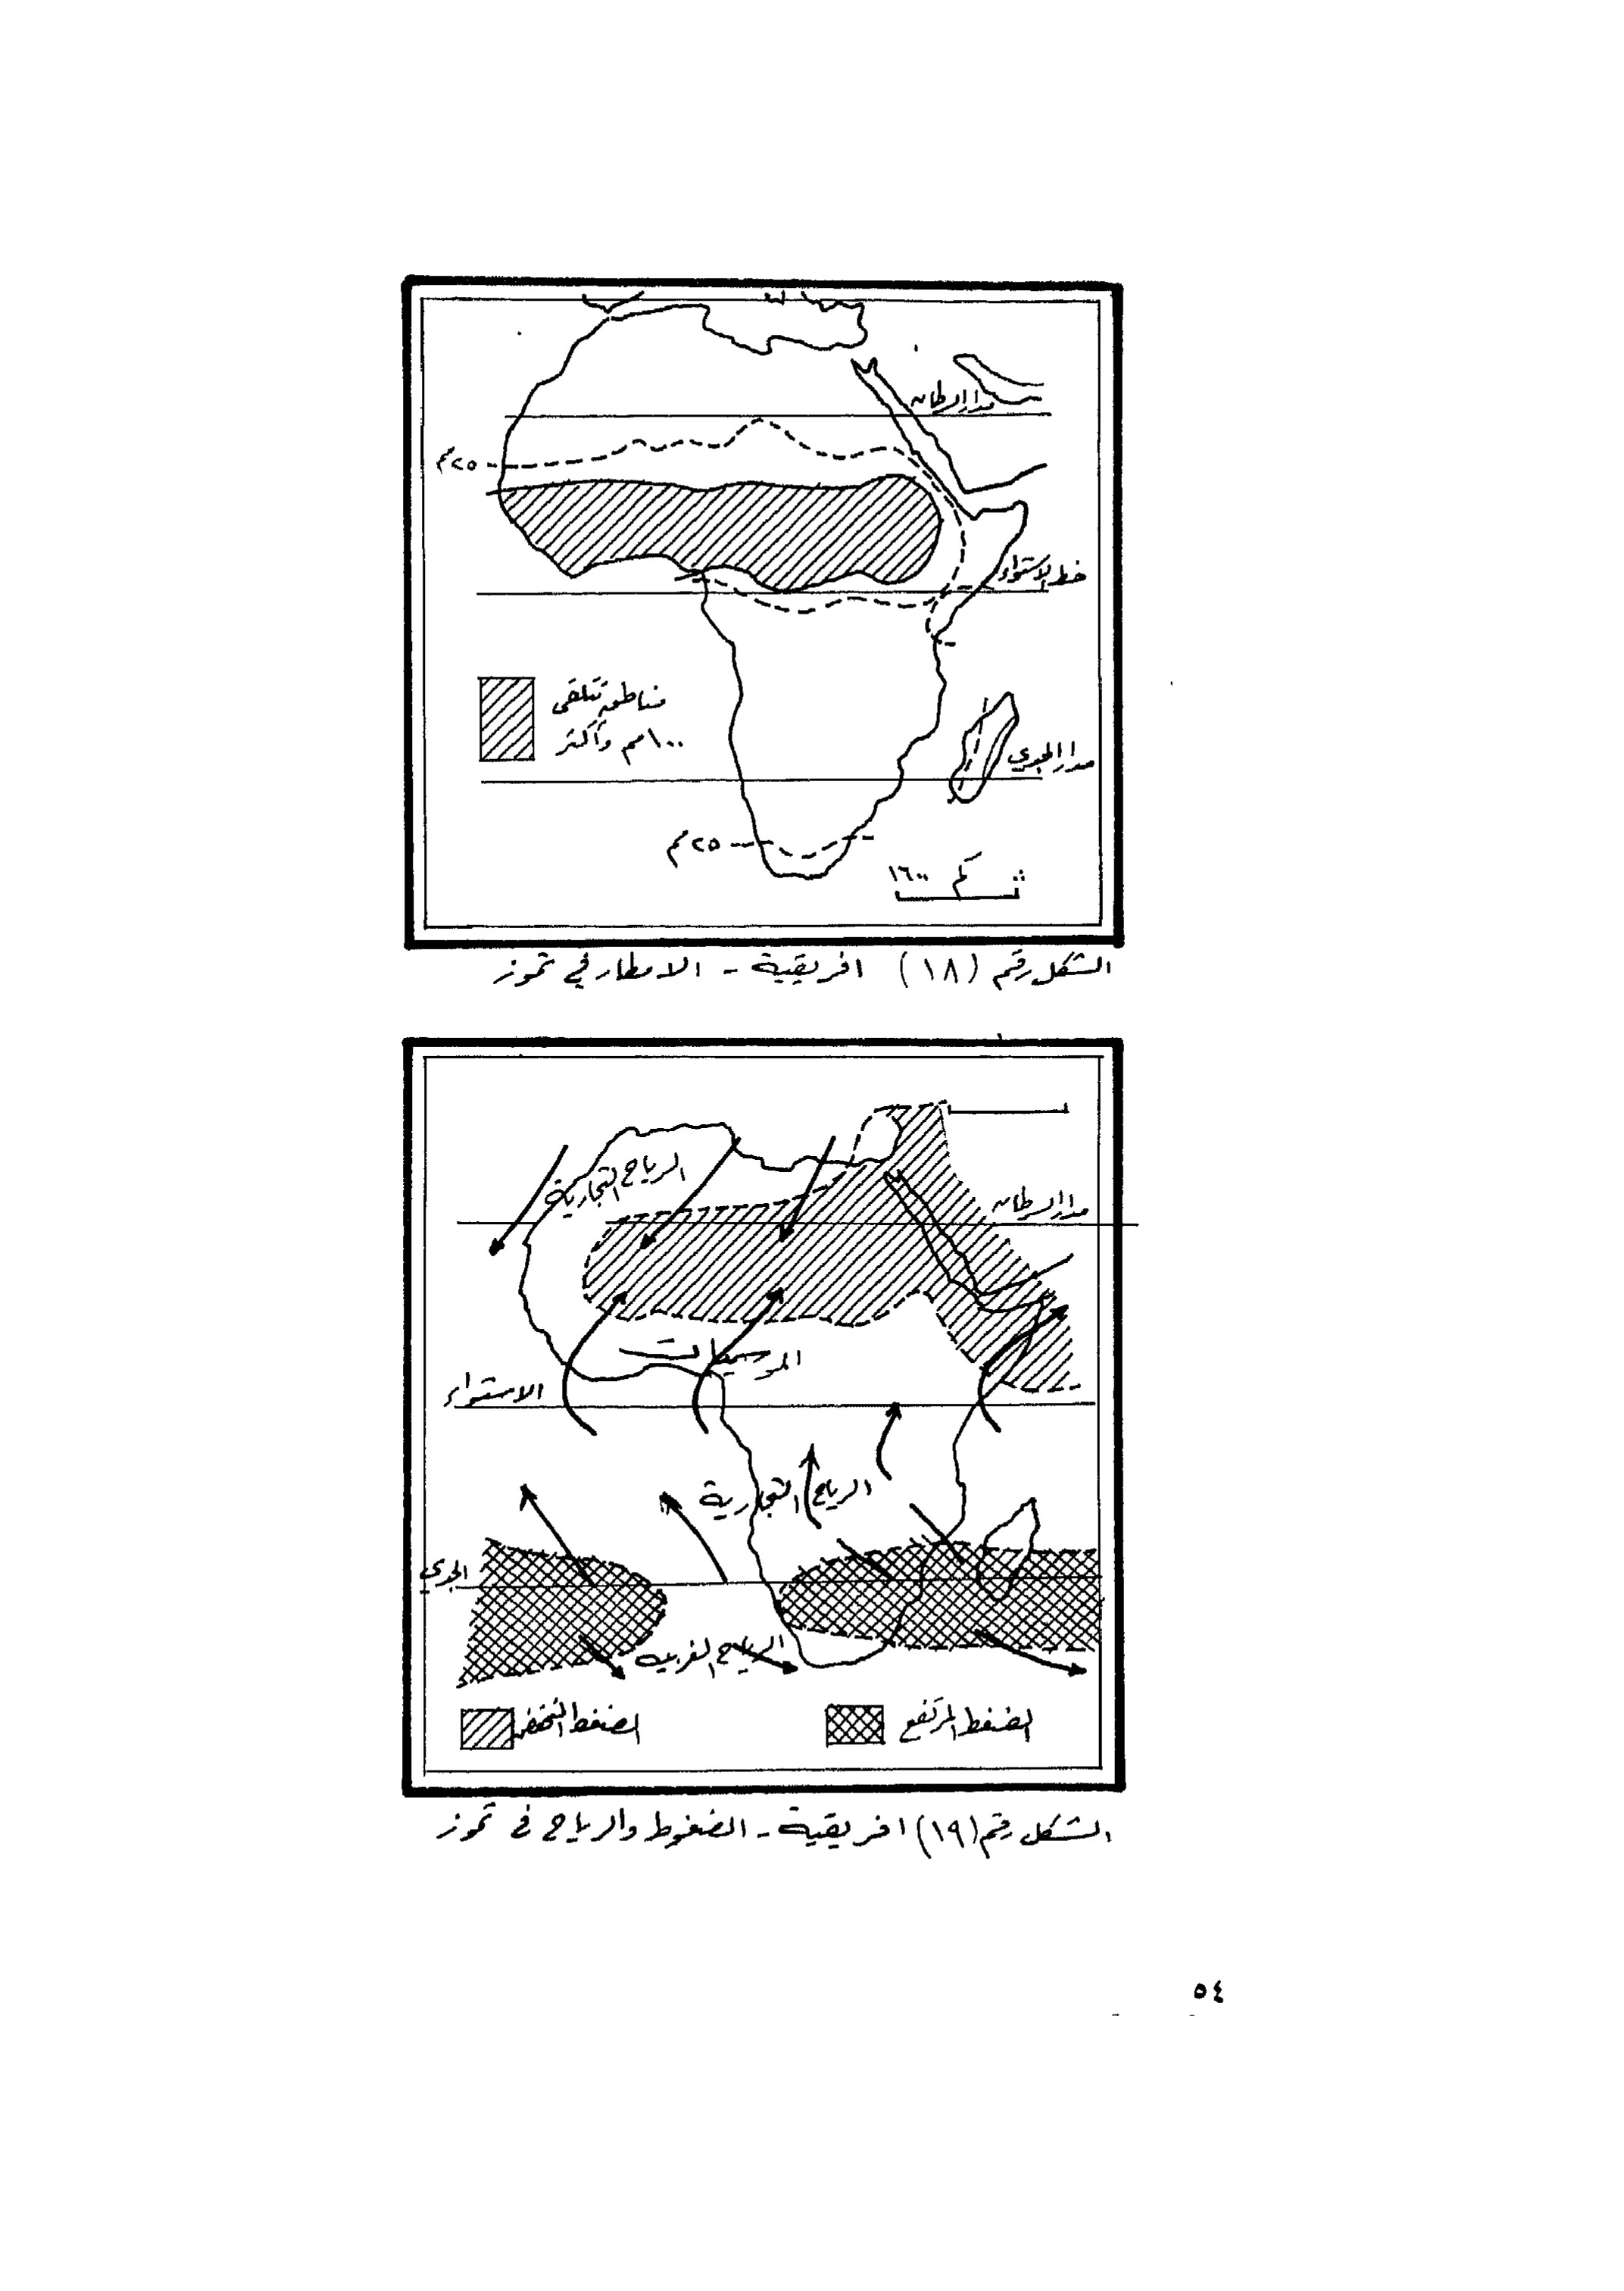 مدار السرطان
٢٥مم
خط الاستواء
مناطق تتلقى
١٠٠مم وأكثر
مدار الجدي
٢٥مم
١٦٠٠ كم ٠
الشكل رقم (١٨) افريقية - الامطار في تموز
الرياح التجارية
مدار السرطان
الموسميات
الاستواء
الرياح التجارية
الجدي
الرياح الغربية
الضغط المرتفع
الضغط المنخفض
الشكل رقم (١٩) افريقية - الضغوط والرياح في تموز
٥٤